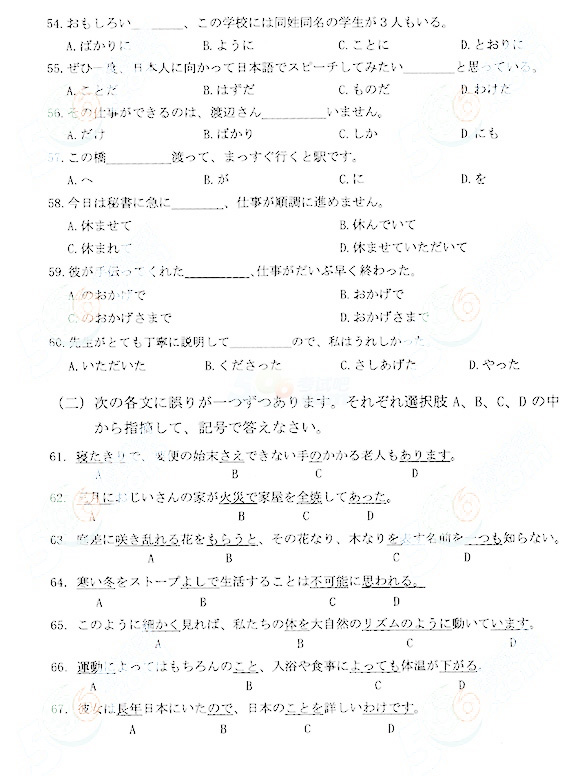 54. おもしろい＿＿＿＿、この学校には同姓同名の学生が3人もいる。
A. ばかりに B. ように C. ことに D. とおりに
55. ぜひ一度、日本人に向かって日本語でスピーチしてみたい＿＿＿＿と思っている。
A. ことだ B. はずだ C. ものだ D. わけた
56. その仕事ができるのは、渡辺さん＿＿＿＿いません。
A. だけ B. ばかり C. しか D. にも
57. この橋＿＿＿＿渡って、まっすぐ行くと駅です。
A. へ B. が C. に D. を
58. 今日は秘書に急に＿＿＿＿、仕事が順調に進めません。
A. 休ませて B. 休んでいて
C. 休まれて D. 休ませていただいて
59. 彼が手伝ってくれた＿＿＿＿、仕事がだいぶ早く終わった。
A. のおかげで B. おかげで
C. のおかげさまで D. おかげさまで
60. 先生がとても丁寧に説明して＿＿＿＿ので、私はうれしかった。
A. いただいた B. くださった C. さしあげた D. やった
（二）次の各文に誤りが一つずつあります。それぞれ選択肢 A、B、C、D の中
から指摘して、記号で答えなさい。
61. 寝たきりで、便の始末さえできない手のかかる老人もあります。
A B C D
62. 三月におじいさんの家が火災で家屋を全焼してあった。
A B C D
63. に咲き乱れる花をもらうと、その花なり、木なりを表す名前を一つも知らない。
A B C D
64. 寒い冬をストーブよしで生活することは不可能に思われる。
A B C D
65. このように細かく見れば、私たちの体を大自然のリズムのように動いています。
A B C D
66. 運動によってはもちろんのこと、入浴や食事によっても体温が下がる。
A B C D
67. 彼女は長年日本にいたので、日本のことを詳しいわけです。
A B C D